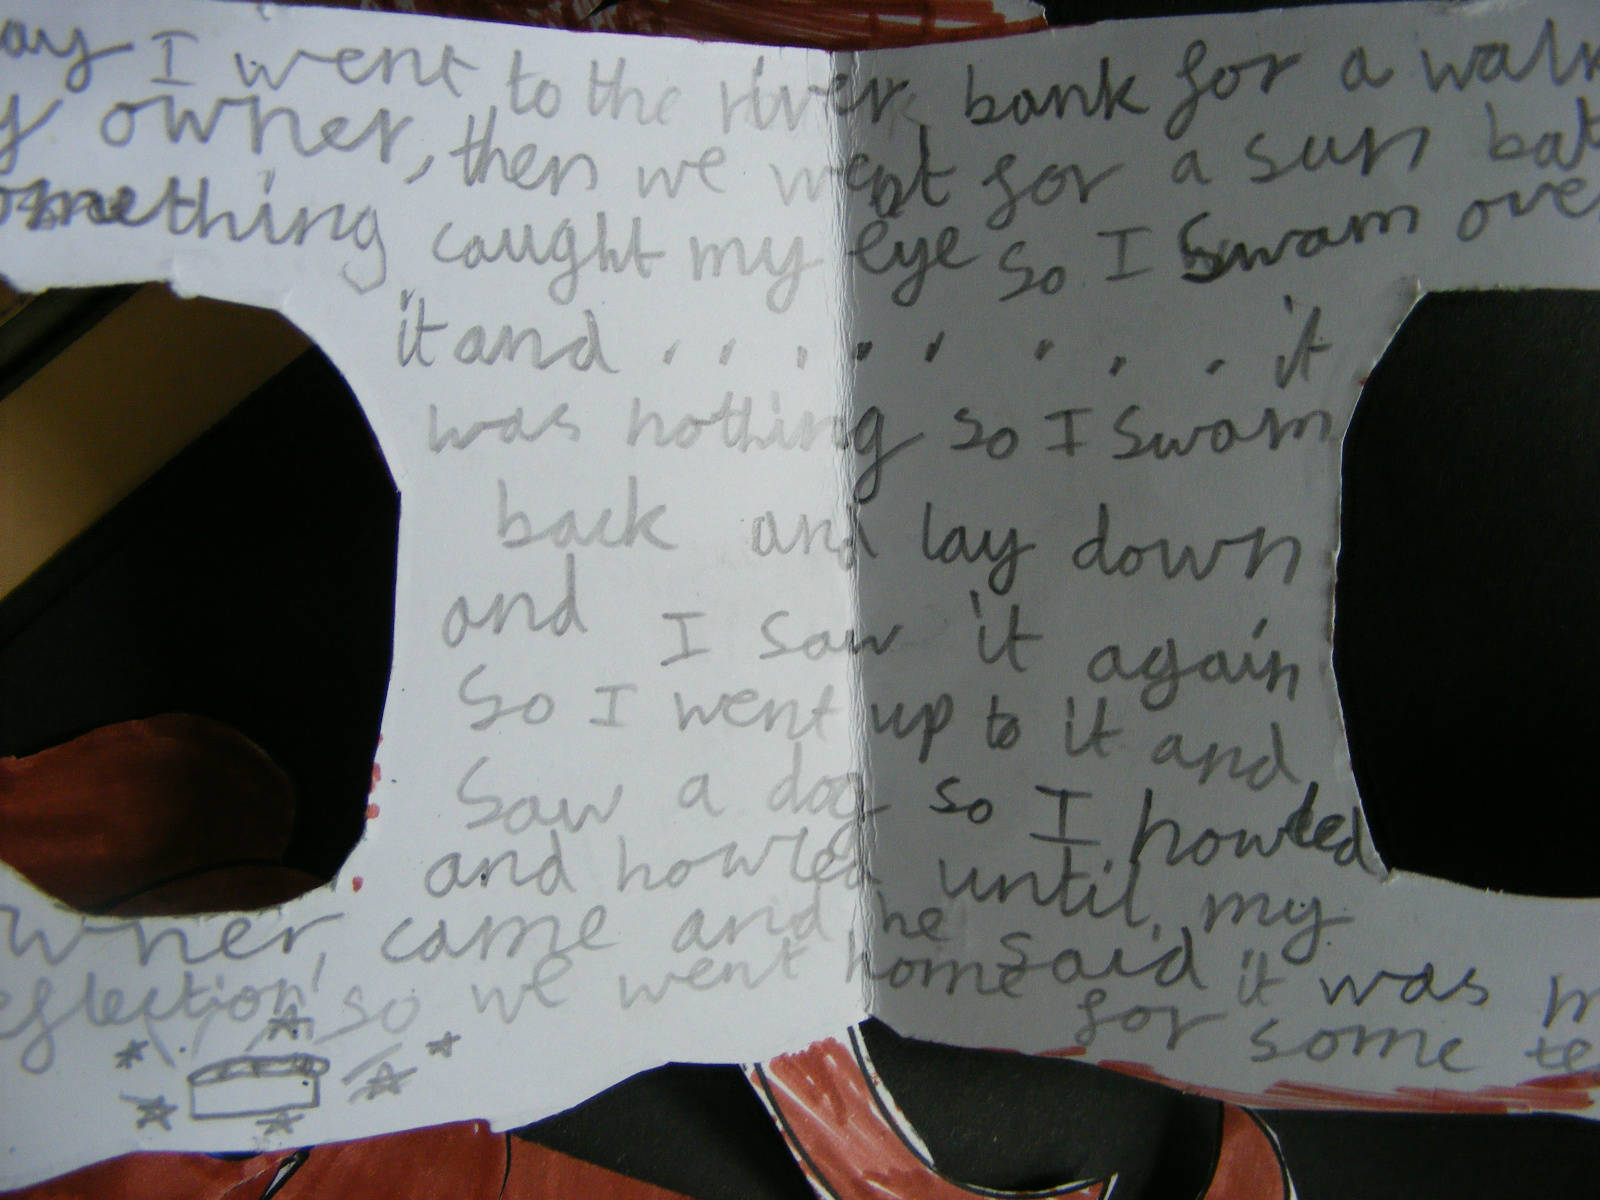 ay I went to the river bank for a walk
y owner, then we went for a sun bat
omething caught my eye so I swam ove
it and . . . . . . . . . it
was nothing so I swam
back and lay down
and I saw it again
So I went up to it and
Saw a dog so I howled
and howled until my
wner, came and he said it was m
eflection, so we went home for some te